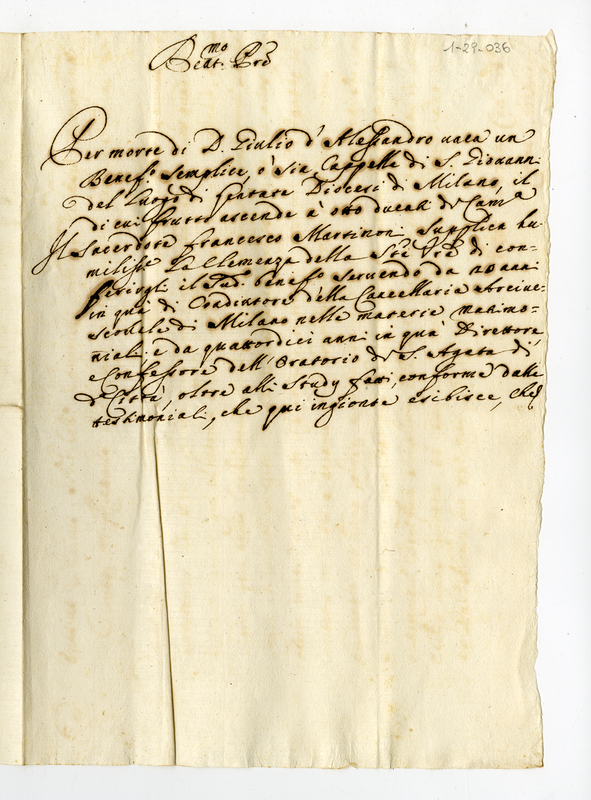 1-29-036
Beat.mo Pre
Per morte di D. Giulio d'Alessandro vaca un
Benef.o Semplice, ò sia Cappella di S. Giovanni
del luogo di Gentate Diocesi di Milano, il
di cui frutto ascende à otto ducati di Cam.a
Il Sacerdote Francesco Martinoni supplica hu-
miliss.te la Clemenza della S.tà V.ra di con-
ferirgli il Sud.o benef.o servendo da 20 anni
in quà di Coadiutore della Cancellaria Arcive-
scovile di Milano nelle materie matrimo-
niali e da quattordici anni in quà Direttore
e Confessore dell'Oratorio di S. Agata di
d.a Città, oltre alli Study fatti, conforme dalle
testimoniali, che qui ingionte esibisce, che